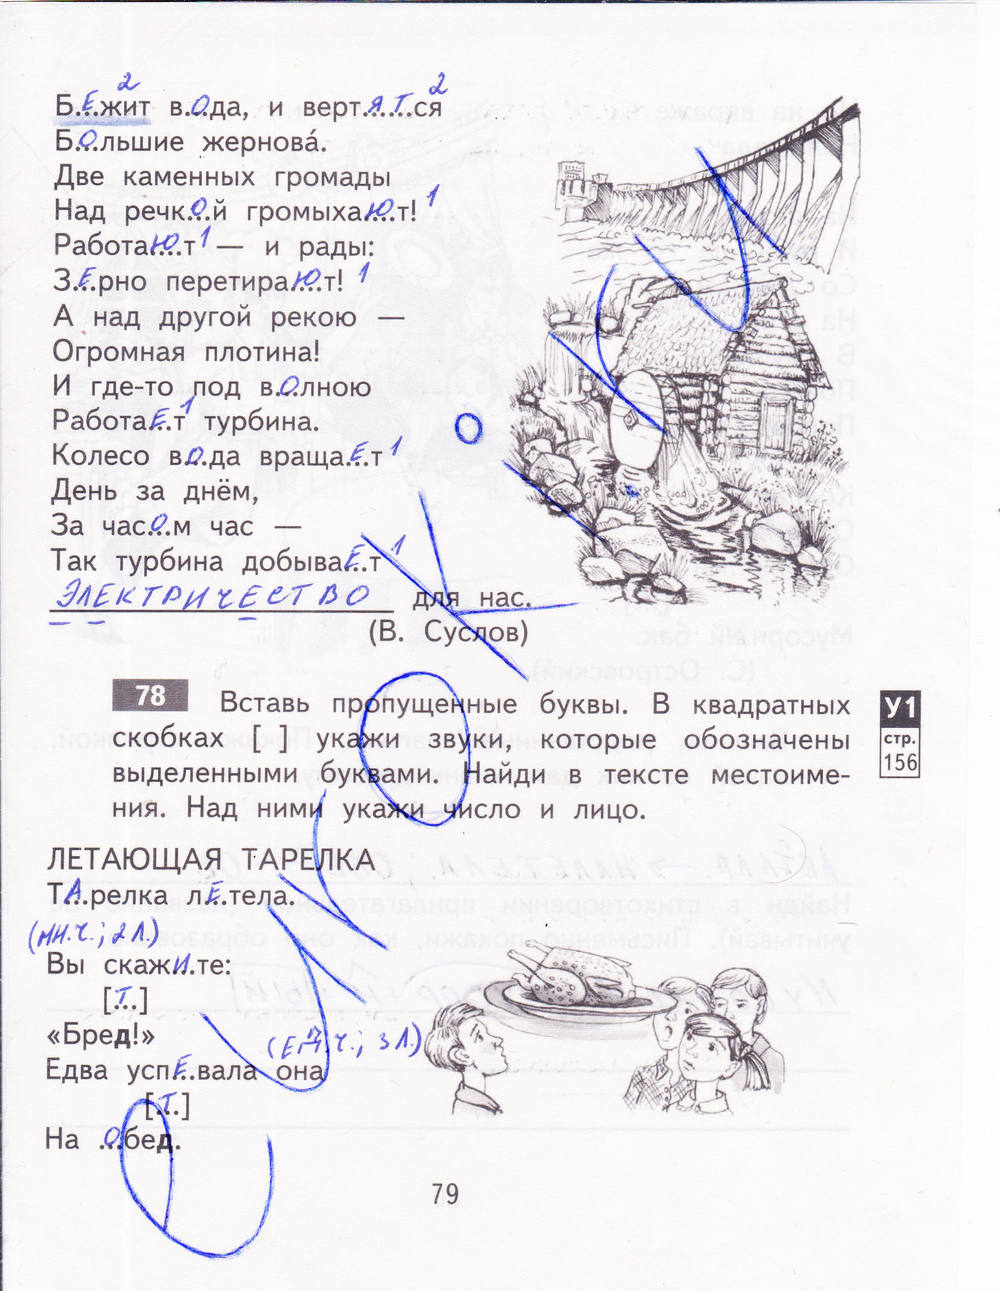 Б.Е.жит в.О.да, и верт.Я.Т.ся
2 2
Б.О..льшие жернова́.
Две каменных громады
Над речк.О.й громыха.Ю.т! 1
Работа.Ю.т 1 — и рады:
З.Е.рно перетира.Ю.т! 1
А над другой рекою —
Огромная плотина!
И где-то под в.О.лною
Работа.Е.т 1 турбина.
Колесо в.О.да враща.Е.т 1
День за днём,
За час.О.м час —
Так турбина добыва.Е.т 1
ЭЛЕКТРИЧЕСТВО для нас.
(В. Суслов)
78 Вставь пропущенные буквы. В квадратных
скобках [ ] укажи звуки, которые обозначены
выделенными буквами. Найди в тексте местоиме-
ния. Над ними укажи число и лицо.
У1
стр.
156
ЛЕТАЮЩАЯ ТАРЕЛКА
Т.А.релка л.Е.тела.
(МН.Ч.; 2 Л.)
Вы скаж.И.те:
[.Т.]
«Бред!»
(ЕД.Ч.; 3 Л.)
Едва усп.Е.вала она
[.Т.]
На .О.бед.
79